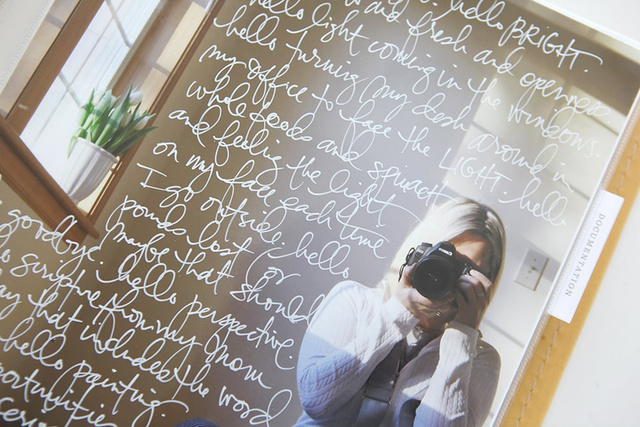 hello BRIGHT.
and fresh and openness
hello light coming in the windows.
hello turning my desk around in
my office to face the LIGHT. hello
whole foods and squash
and feeling the light
on my face each time
I go outside. hello
pounds lost (or
maybe that should
goodbye. hello perspective.
scripture from my mom
that includes the word
hello painting.
DOCUMENTATION